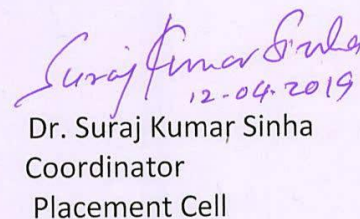 Suraj Kumar Sinha
12-04-2019
Dr. Suraj Kumar Sinha
Coordinator
Placement Cell